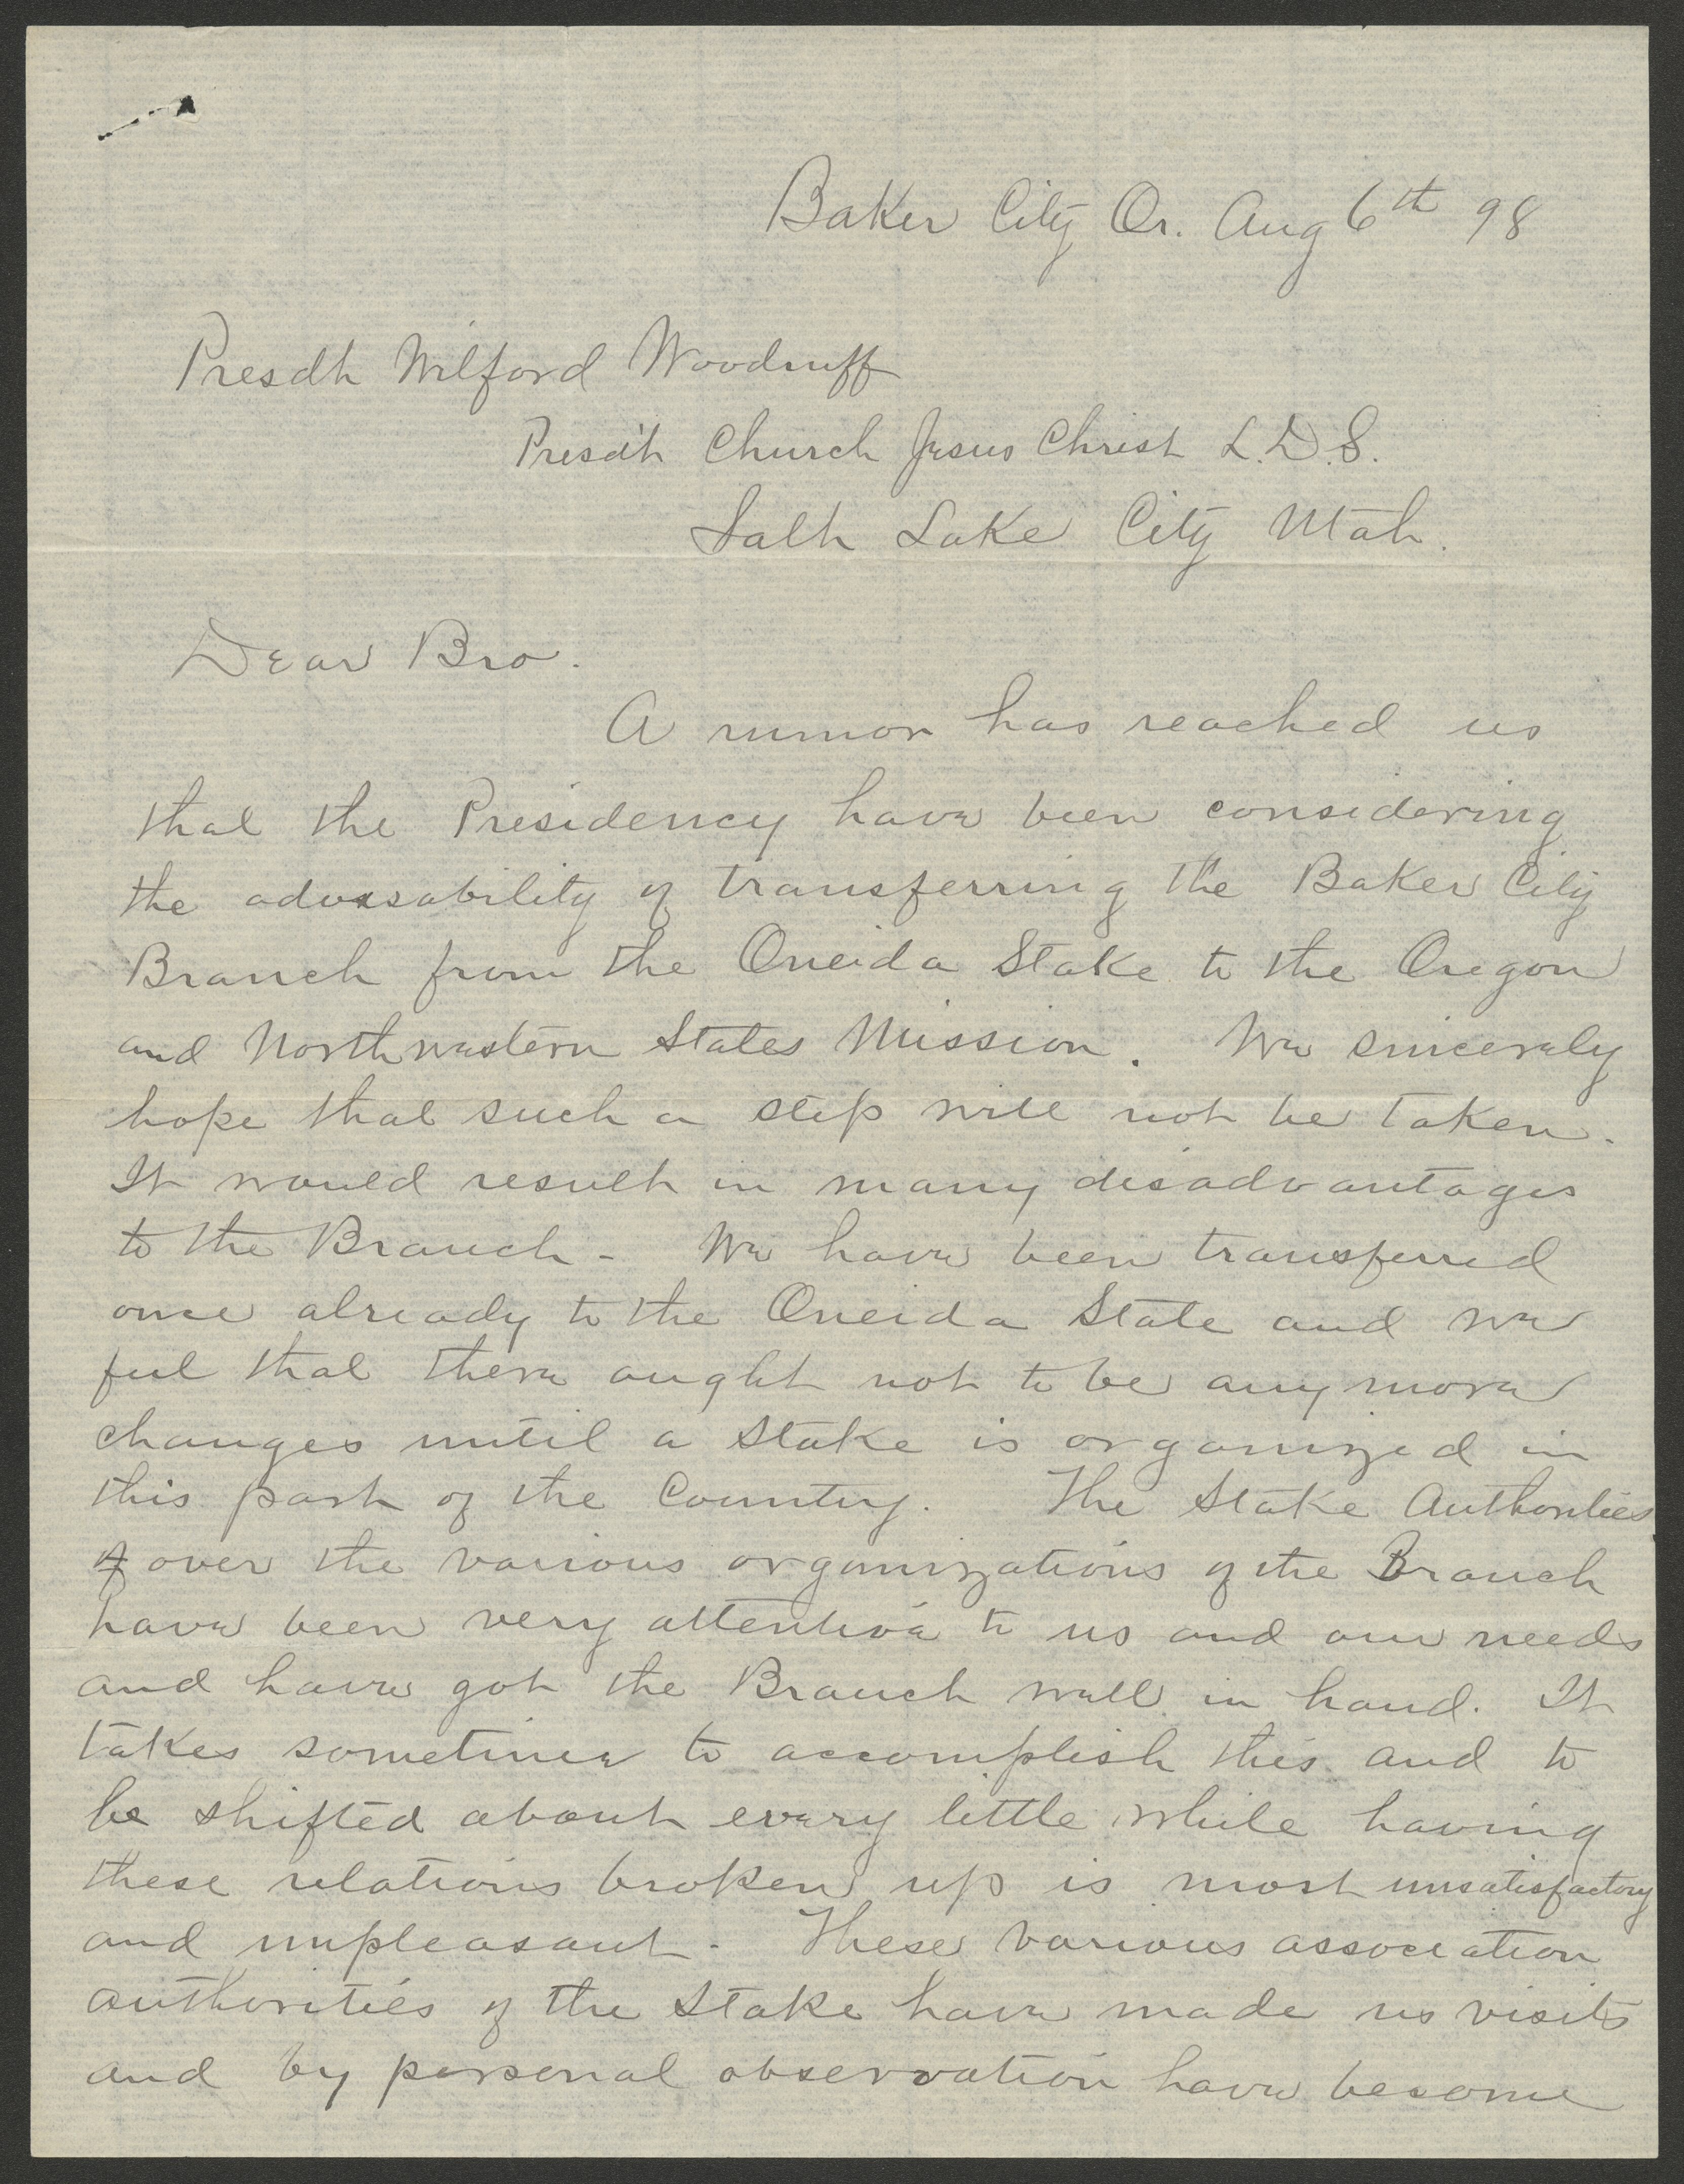 Baker City Or. Aug 6th 98
Presdt Wilford Woodruff
Presdt Church Jesus Christ L.D.S.
Salt Lake City Utah.
Dear Bro.
A rumor has reached us
that the Presidency have been considering
the advisability of transferring the Baker City
Branch from the Oneida Stake to the Oregon
and Northwestern States Mission. We sincerely
hope that such a step will not be taken.
It would result in many disadvantages
to the Branch - We have been transferred
once already to the Oneida State and we
feel that there ought not to be any more
changes until a Stake is organized in
this part of the Country. The Stake Authorities
of over the various organizations of the Branch
have been very attentive to us and our needs
and have got the Branch well in hand. It
takes sometime to accomplish this and to
be shifted about every little while having
these relations broken up is most unsatisfactory
and unpleasant. These various association
authorities of the Stake have made us visits
and by personal observation have become